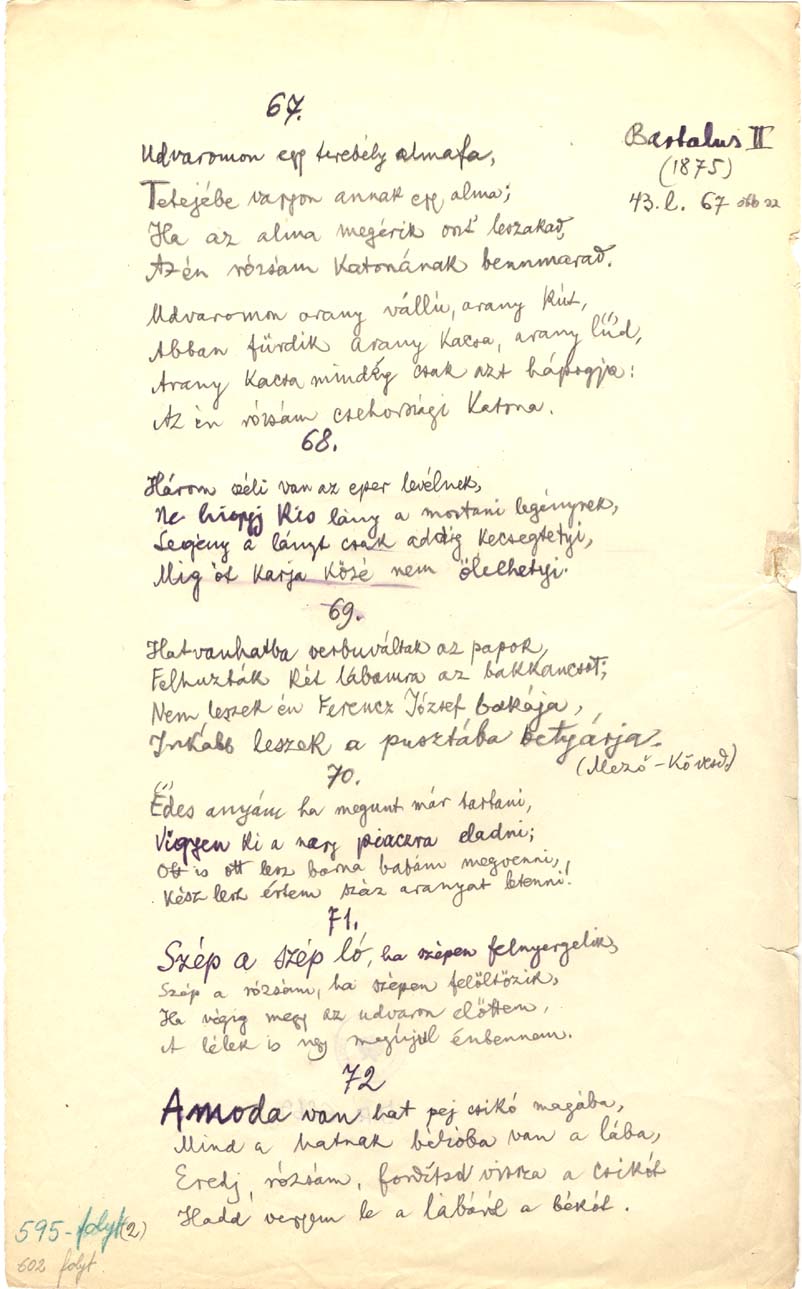 67.
Bartalus II
(1875)
43. l. 67
Udvaromon egy terebély almafa,
Tetejébe vagyon annak egy alma;
Ha az alma megérik oszt' leszakad,
Az én rózsám Katonának bennmarad.
Udvaromon arany vállú, arany kút,
Abban fürdik arany kacsa, arany lúd,
Arany kacsa mindég csak azt hápogja:
Az én rózsám csehországi katona.
68.
Három széli van az eper levélnek,
Ne higyj kis lány a mostani legénynek,
Legény a lányt csak addig kecsegtetyi,
Mig őt karja közé nem ölelhetyi.
69.
Hatvanhatba verbuváltak az papok,
Felhuzták két lábomra az bakkancsot;
Nem leszek én Ferencz József bakája,
Inkább leszek a pusztába betyárja.
(Mező-Kövesd.)
70.
Édes anyám ha megunt már tartani,
Vigyen ki a nagy piaczra eladni;
Ott is ott lesz barna babám megvenni,
Kész lesz értem száz aranyat letenni!
71.
Szép a szép ló, ha szépen felnyergelik,
Szép a rózsám, ha szépen felöltözik,
Ha végig megy az udvaron előttem,
A lélek is ugy megújul énbennem.
72
Amoda van hat pej csikó magába,
Mind a hatnak béklóba van a lába,
Eredj, rózsám, fordítsd vissza a csikót
Hadd vegyem le a lábáról a békót.
595-folyt(2)
602 folyt.